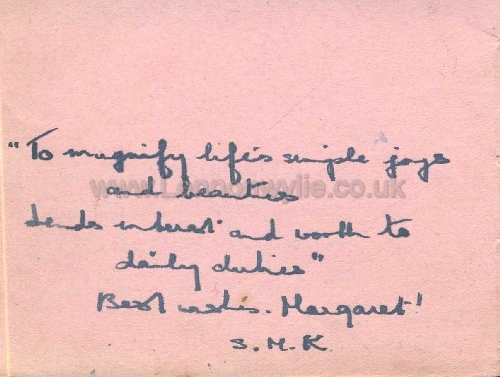 "To magnify life's simple joys
and beauties
www.Lennonwylie.co.uk
Lends interest and worth to
daily duties"
Best wishes. Margaret!
S.M.K.